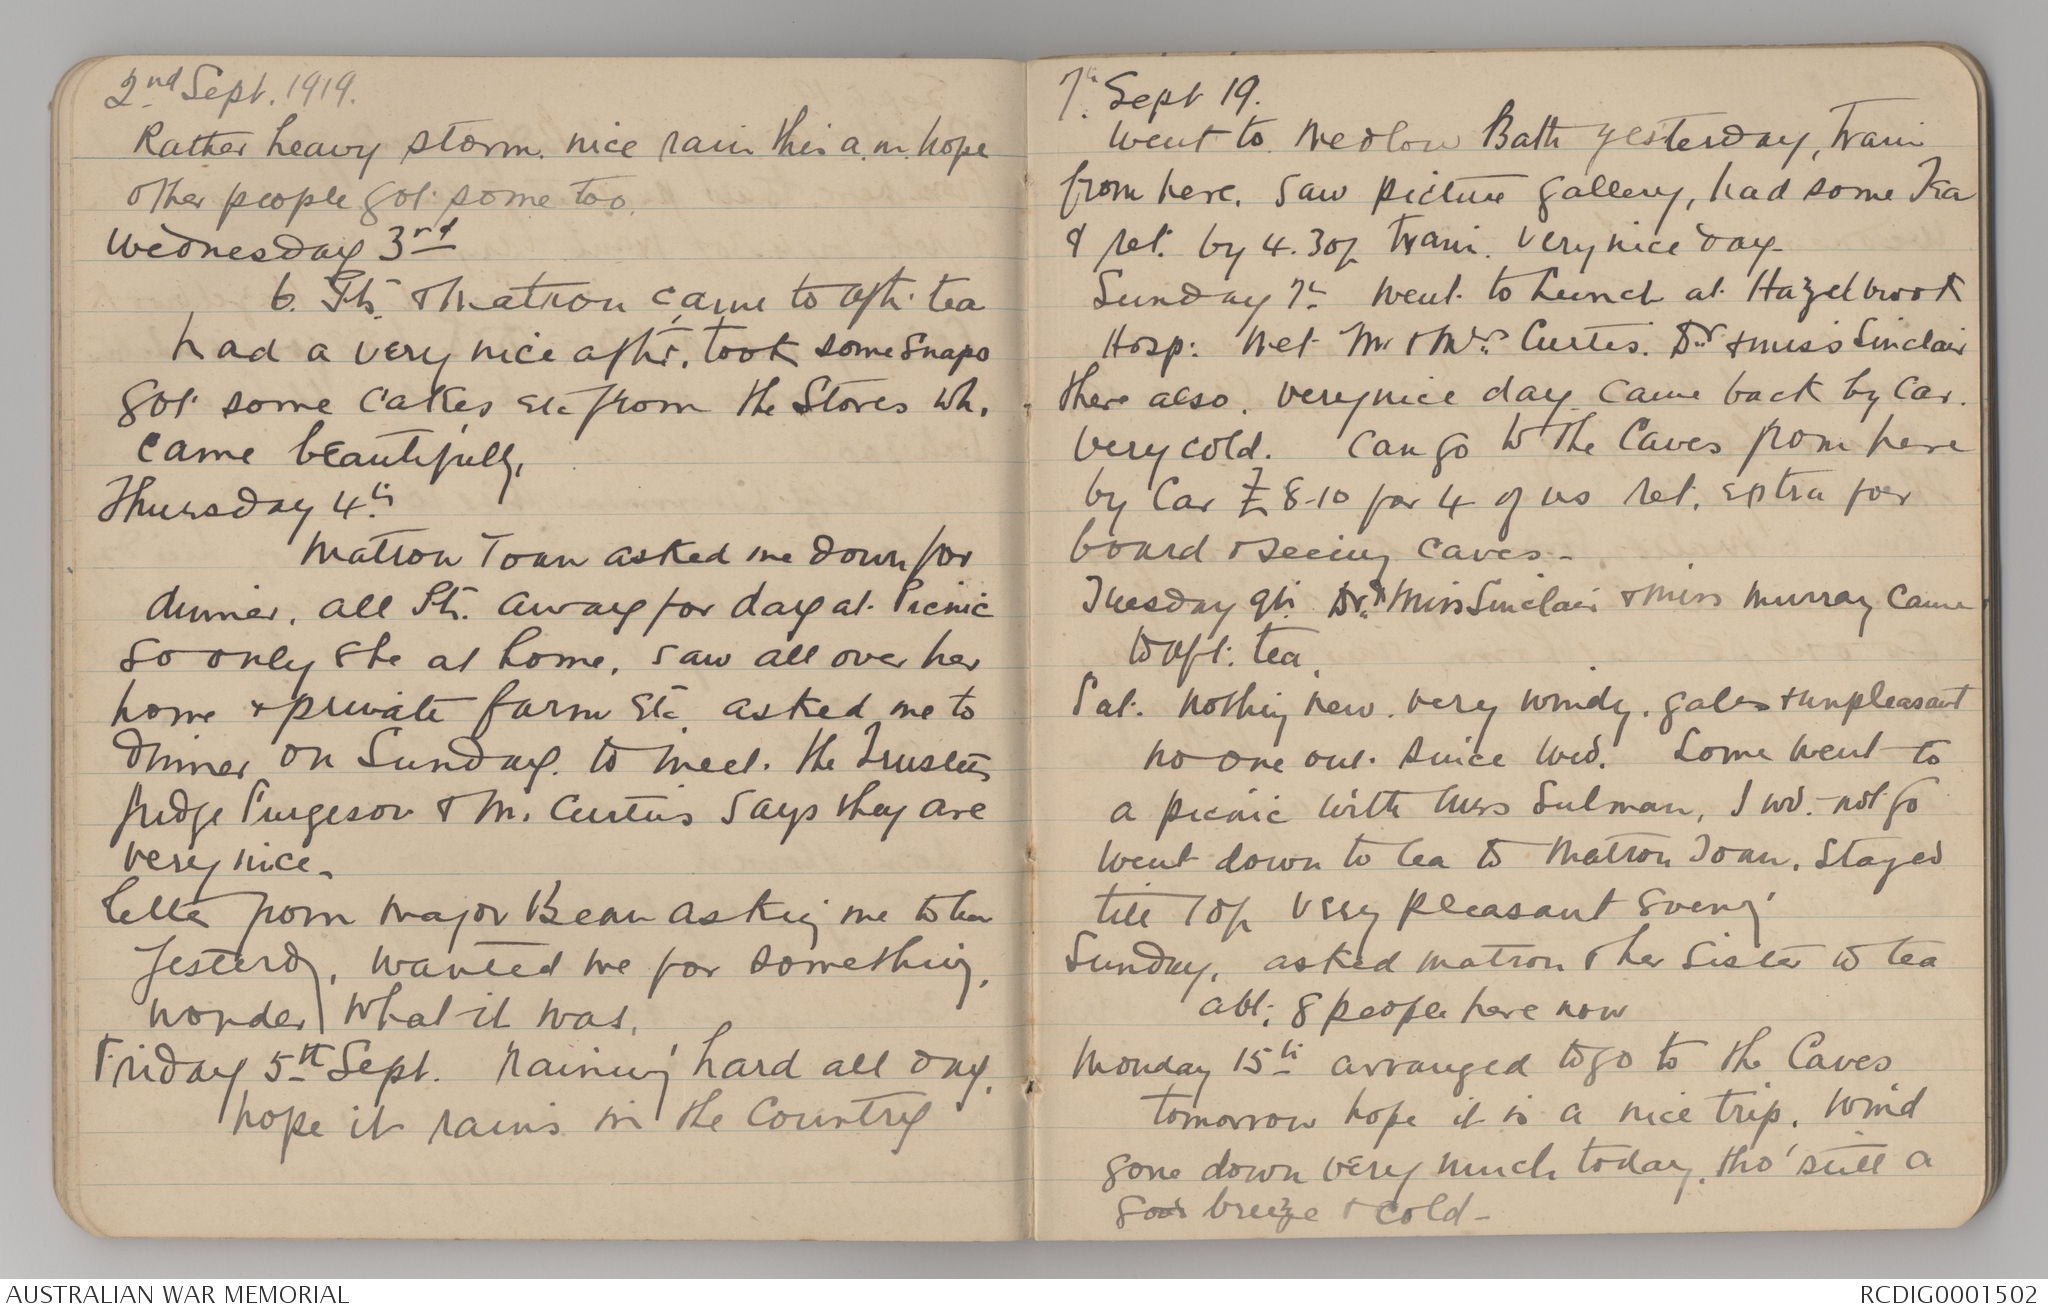 2nd Sept. 1919.
Rather heavy storm. nice rain this a.m. hope
other people got some too.
Wednesday 3rd
6. Pts. & Matron came to aft. tea
had a very nice aftn. took some snaps
got some cakes etc from the Stores wh.
came beautifully,
Thursday 4th
Matron Toan asked me down for
dinner, all Pts. away for day at Picnic
so only she at home. saw all over her
home & private farm etc asked me to
dinner on Sunday. to meet. the Trustees
Judge Furgeson & Mr Curtis says they are
very nice_
letter from Major Bean asking me to tea
Yesterdy, wanted me for something,
wonder what it was.
Friday 5th Sept. raining hard all day.
hope it rains in the Country
7th Sept 19.
Went to Medlow Bath yesterday, train
from here. saw picture gallery, had some tea
& ret. by 4.30p train. very nice day_
Sunday 7th Went to Lunch at Hazelbrook
Hosp: Met Mr & Mrs Curtis. Dr. & Miss Sinclair
there also. very nice day came back by Car.
very cold. Can go to the Caves from here
by Car £8-10 for 4 of us ret. extra for
board & seeing caves_
Tuesday 9th. Dr. & Miss Sinclair & Miss Murray came
to aft. tea
Sat. nothing new. very windy. gales & unpleasant
no one out since Wed. Some went to
a picnic with Miss Sulman, I wd. not go
Went down to tea to Matron Toan. Stayed
till 10p very pleasant eveng
Sunday, asked Matron & her Sister to tea
abt. 8 people here now
Monday 15th arranged to go to the Caves
tomorrow hope it is a nice trip. Wind
gone down very much today. tho' still a
good breeze & cold_
AUSTRALIAN WAR MEMORIAL
RCDIG0001502